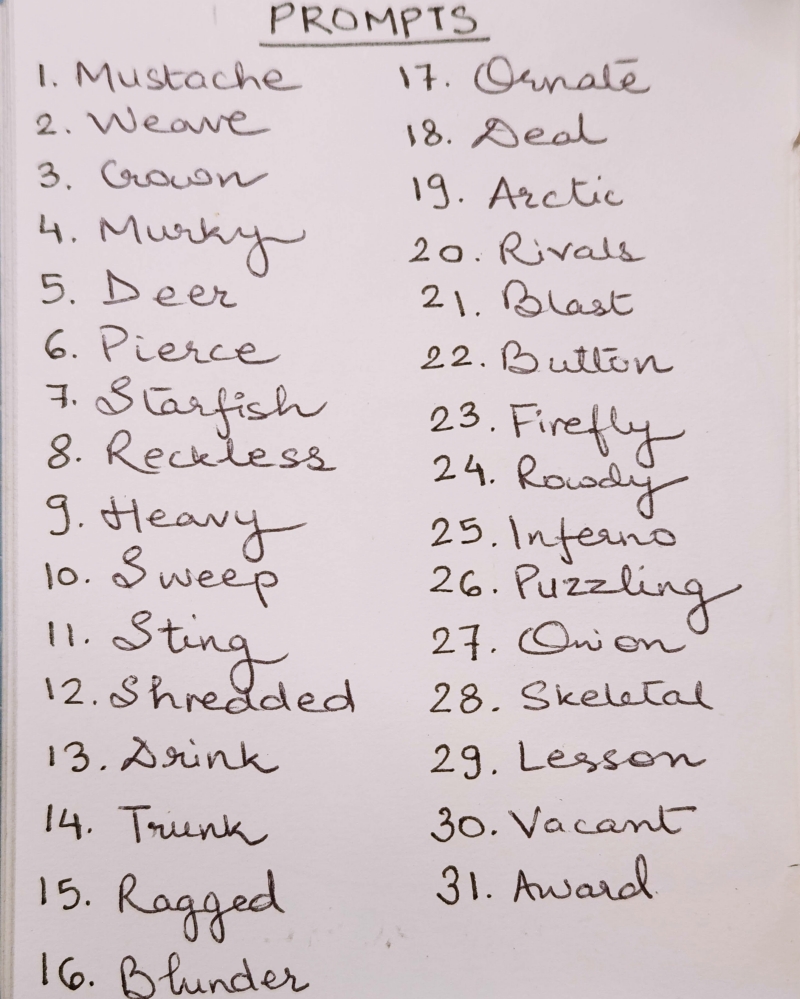 PROMPTS
1. Mustache
2. Weave
3. Crown
4. Murky
5. Deer
6. Pierce
7. Starfish
8. Reckless
9. Heavy
10. Sweep
11. Sting
12. Shredded
13. Drink
14. Trunk
15. Ragged
16. Blunder
17. Ornate
18. Deal
19. Arctic
20. Rivals
21. Blast
22. Button
23. Firefly
24. Rowdy
25. Inferno
26. Puzzling
27. Onion
28. Skeletal
29. Lesson
30. Vacant
31. Award